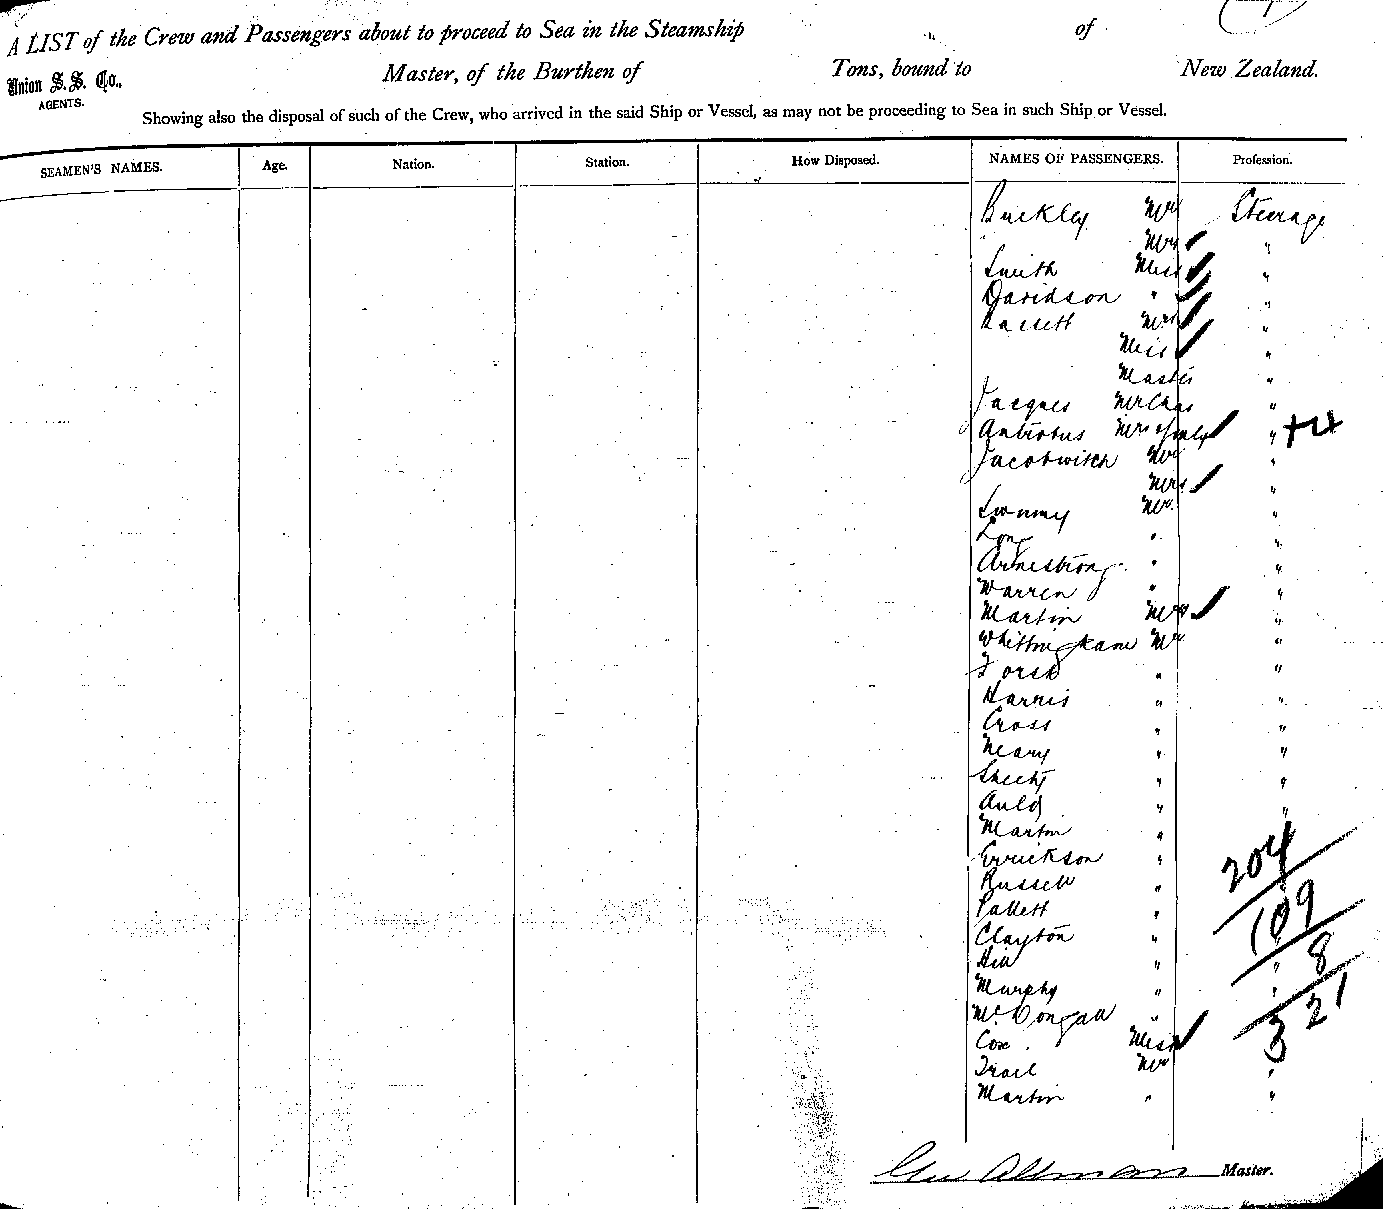 A LIST of the Crew and Passengers about to proceed to Sea in the Steamship of
Union S.S. Co., Master, of the Burthen of Tons, bound to New Zealand.
AGENTS.
Showing also the disposal of such of the Crew, who arrived in the said Ship or Vessel, as may not be proceeding to Sea in such Ship or Vessel.
SEAMEN'S NAMES. Age. Nation. Station. How Disposed. NAMES OF PASSENGERS. Profession.
Buckley Mr Steerage
Mrs "
Smith Miss "
Davidson " "
Bassett Mrs "
Miss "
Master "
Jacques Mr Chas "
Antrobus Mrs & family " +4
Jacobwitch Mr "
Mrs "
Mr "
Long " "
Armstrong " "
Warren " "
Martin Mrs "
Whittingham Mr "
" "
Harris " "
Cross " "
Neary " "
Sheehy " "
Auld " "
Martin "
Errickson " 204
Russell "
Pallett " 109
Clayton "
Hill " " 8
Murphy " "
McDougall " 321
Cox Miss
Trail Mr "
Martin " "
Geo Allman Master.